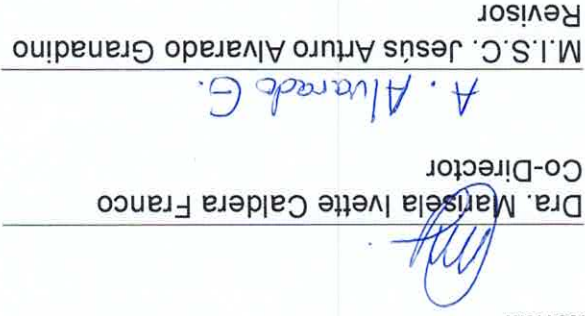 Dra. Marisela Ivette Caldera Franco
Co-Director
A. Alvarado G.
M.I.S.C. Jesús Arturo Alvarado Granadino
Revisor